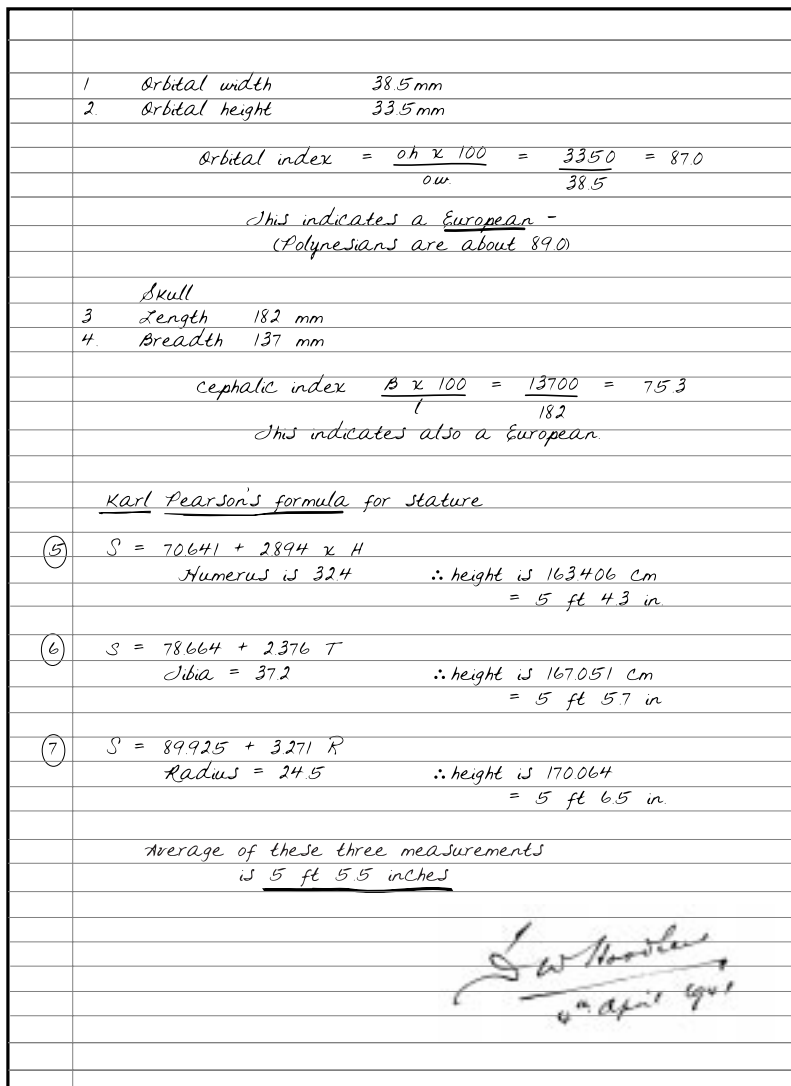 1 Orbital width 38.5mm
2. Orbital height 33.5mm
Orbital index = oh x 100 / ow. = 3350 / 38.5 = 87.0
This indicates a European -
(Polynesians are about 89.0)
Skull
3 Length 182 mm
4. Breadth 137 mm
Cephalic index B x 100 / l = 13700 / 182 = 75.3
This indicates also a European.
Karl Pearson's formula for stature
5 S = 70.641 + 2.894 x H
Humerus is 32.4 ∴ height is 163.406 cm
= 5 ft 4.3 in.
6 S = 78.664 + 2.376 T
Tibia = 37.2 ∴ height is 167.051 cm
= 5 ft 5.7 in
7 S = 89.925 + 3.271 R
Radius = 24.5 ∴ height is 170.064
= 5 ft 6.5 in.
Average of these three measurements
is 5 ft 5.5 inches
D W Hoodless
4th April 1941